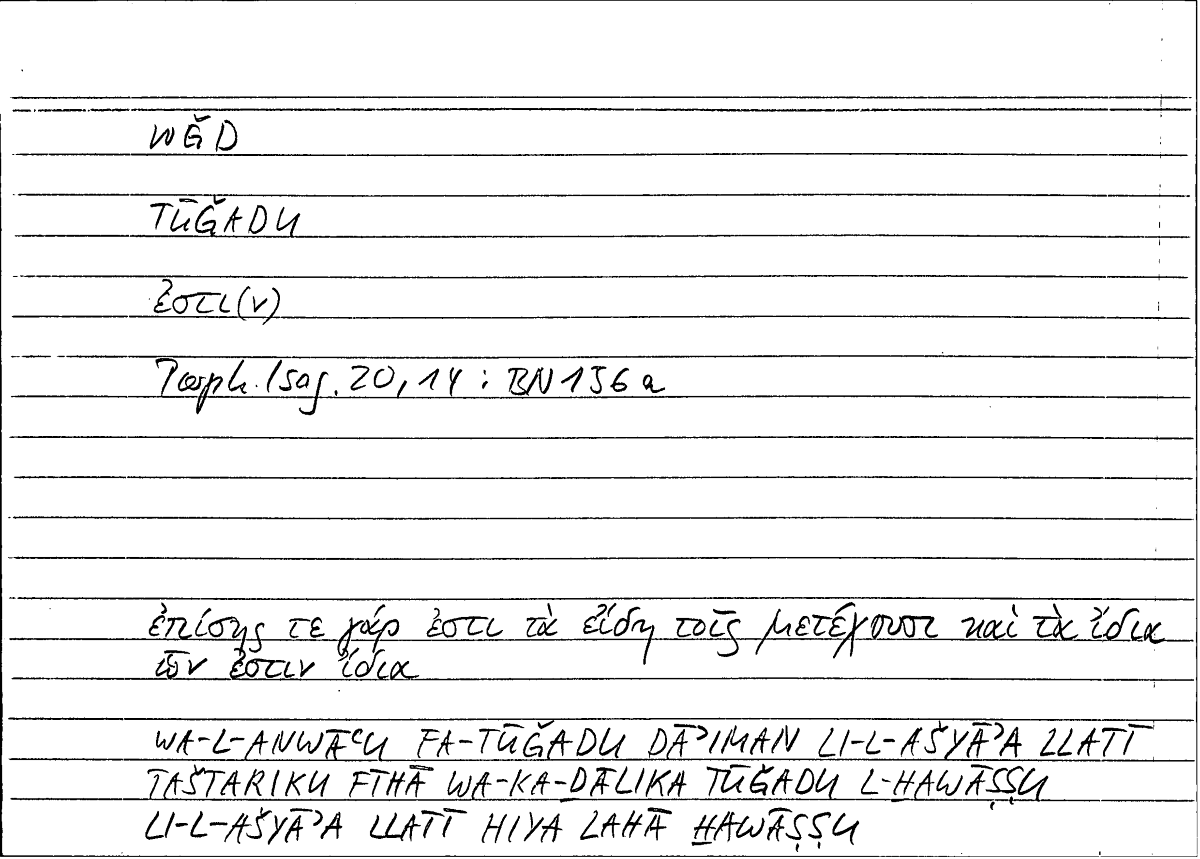 WǦD
TŪǦADU
ἐστι(ν)
Porph. Isag. 20,14 : BN 156 a
ἐπίσης τε γάρ ἐστι τὰ εἴδη τοῖς μετέχουσι καὶ τὰ ἴδια
ὧν ἐστιν ἴδια
WA-L-ANWĀʿU FA-TŪǦADU DĀʾIMAN LI-L-AŠYĀʾA LLATĪ
TAŠTARIKU FĪHĀ WA-KA-ḎĀLIKA TŪǦADU L-ḪAWĀṢṢU
LI-L-AŠYĀʾA LLATĪ HIYA LAHĀ ḪAWĀṢṢU